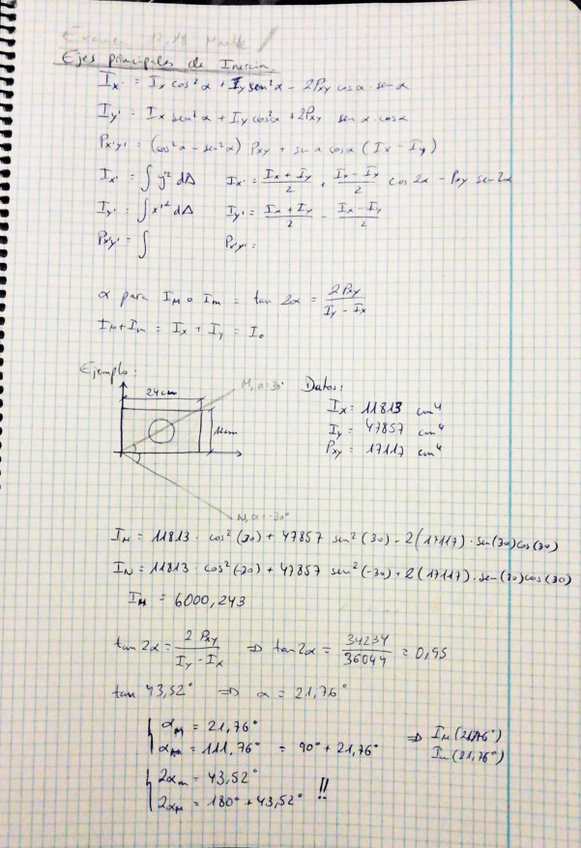 Ejes principales de Inercia
Ix' = Ix cos²α + Iy sen²α - 2Pxy cosα · senα
Iy' = Ix sen²α + Iy cos²α + 2Pxy senα cosα
Px'y' = (cos²α - sen²α) Pxy + senα cosα (Ix - Iy)
Ix' = ∫ y'² dA Ix' = (Ix + Iy)/2 + (Ix - Ix)/2 cos 2α - Pxy sen 2α
Iy' = ∫ x'² dA Iy' = (Ix + Iy)/2 - (Ix - Iy)/2
Px'y' = ∫ Px'y' =
α para IM o Im = tan 2α = 2Pxy/(Iy - Ix)
IM + Im = Ix + Iy = Io
Ejemplo:
24cm
M, α=30°
N, α=-30°
Datos:
Ix = 11813 cm⁴
Iy = 47857 cm⁴
Pxy = 17117 cm⁴
IM = 11813 · cos²(30) + 47857 sen²(30) - 2(17117) · sen(30) cos(30)
IN = 11813 · cos²(-30) + 47857 sen²(-30) + 2(17117) · sen(30) cos(30)
IM = 6000,243
tan 2α = 2 Pxy/(Iy - Ix) ⇒ tan 2α = 34234/36044 = 0,95
tan 43,52° ⇒ α = 21,76°
αm = 21,76°
αM = 111,76° = 90° + 21,76°
⇒ IM (21,76°)
Im (21,76°)
2αm = 43,52°
2αM = 180° + 43,52° !!